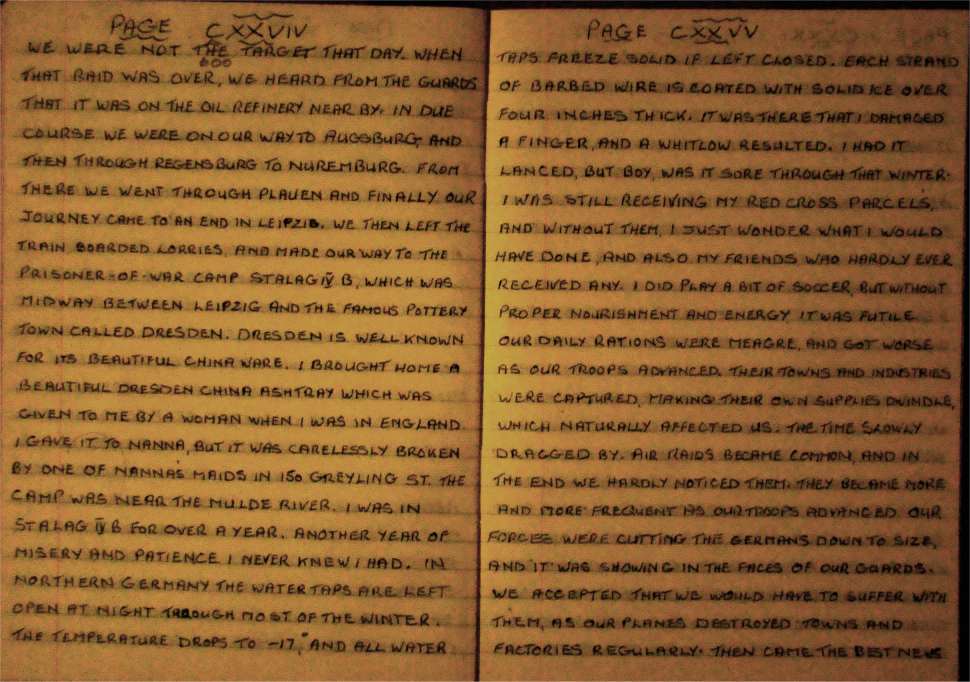 PAGE CXXVIV
WE WERE NOT THE TARGET THAT DAY. WHEN
600
THAT RAID WAS OVER, WE HEARD FROM THE GUARDS
THAT IT WAS ON THE OIL REFINERY NEAR BY. IN DUE
COURSE WE WERE ON OUR WAY TO AUGSBURG, AND
THEN THROUGH REGENSBURG TO NUREMBURG. FROM
THERE WE WENT THROUGH PLAUEN AND FINALLY OUR
JOURNEY CAME TO AN END IN LEIPZIG. WE THEN LEFT THE
TRAIN BOARDED LORRIES, AND MADE OUR WAY TO THE
PRISONER-OF-WAR CAMP STALAG IV B, WHICH WAS
MIDWAY BETWEEN LEIPZIG AND THE FAMOUS POTTERY
TOWN CALLED DRESDEN. DRESDEN IS WELL KNOWN
FOR ITS BEAUTIFUL CHINA WARE. I BROUGHT HOME A
BEAUTIFUL DRESDEN CHINA ASHTRAY WHICH WAS
GIVEN TO ME BY A WOMAN WHEN I WAS IN ENGLAND.
I GAVE IT TO NANNA, BUT IT WAS CARELESSLY BROKEN
BY ONE OF NANNAS MAIDS IN 150 GREYLING ST. THE
CAMP WAS NEAR THE MULDE RIVER. I WAS IN
STALAG IV B FOR OVER A YEAR. ANOTHER YEAR OF
MISERY AND PATIENCE I NEVER KNEW I HAD. IN
NORTHERN GERMANY THE WATER TAPS ARE LEFT
OPEN AT NIGHT THROUGH MOST OF THE WINTER.
THE TEMPERATURE DROPS TO -17°, AND ALL WATER
PAGE CXXVV
TAPS FREEZE SOLID IF LEFT CLOSED. EACH STRAND
OF BARBED WIRE IS COATED WITH SOLID ICE OVER
FOUR INCHES THICK. IT WAS THERE THAT I DAMAGED
A FINGER, AND A WHITLOW RESULTED. I HAD IT
LANCED, BUT BOY, WAS IT SORE THROUGH THAT WINTER.
I WAS STILL RECEIVING MY RED CROSS PARCELS,
AND WITHOUT THEM, I JUST WONDER WHAT I WOULD
HAVE DONE, AND ALSO MY FRIENDS WHO HARDLY EVER
RECEIVED ANY. I DID PLAY A BIT OF SOCCER, BUT WITHOUT
PROPER NOURISHMENT AND ENERGY IT WAS FUTILE.
OUR DAILY RATIONS WERE MEAGRE, AND GOT WORSE
AS OUR TROOPS ADVANCED. THEIR TOWNS AND INDUSTRIES
WERE CAPTURED, MAKING THEIR OWN SUPPLIES DWINDLE,
WHICH NATURALLY AFFECTED US. THE TIME SLOWLY
DRAGGED BY. AIR RAIDS BECAME COMMON, AND IN
THE END WE HARDLY NOTICED THEM. THEY BECAME MORE
AND MORE FREQUENT AS OUR TROOPS ADVANCED. OUR
FORCES WERE CUTTING THE GERMANS DOWN TO SIZE,
AND IT WAS SHOWING IN THE FACES OF OUR GUARDS.
WE ACCEPTED THAT WE WOULD HAVE TO SUFFER WITH
THEM, AS OUR PLANES DESTROYED TOWNS AND
FACTORIES REGULARLY. THEN CAME THE BEST NEWS